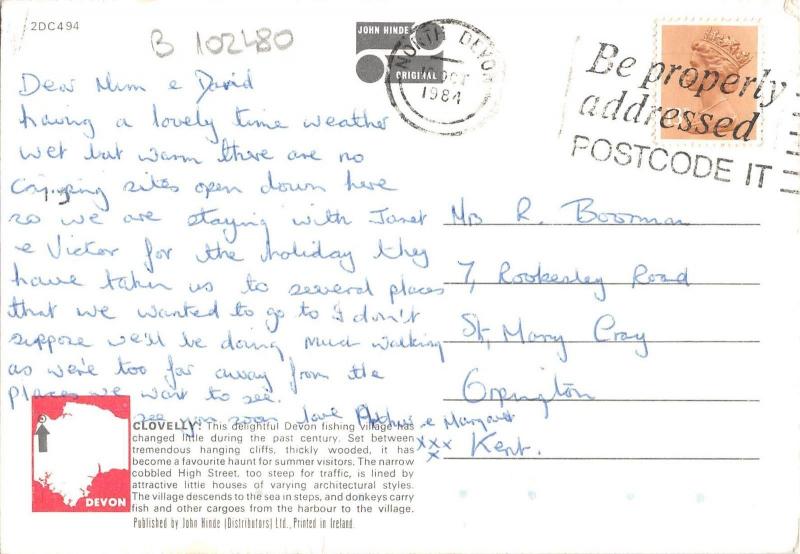 2DC494
B 102480
JOHN HINDE
ORIGINAL
NORTH DEVON
OCT
1984
Be properly
addressed
POSTCODE IT
Dear Mum & David
having a lovely time weather
wet but warm there are no
camping sites open down here
so we are staying with Janet
& Victor for the holiday they
have taken us to several places
that we wanted to go to I don't
suppose we'll be doing much walking
as we're too far away from the
places we want to see.
see you soon love & Margaret
xxx
x
Mrs R. Boorman
7, Rookesley Road
St, Mary Cray
Orpington
Kent.
DEVON
CLOVELLY: This delightful Devon fishing village has
changed little during the past century. Set between
tremendous hanging cliffs, thickly wooded, it has
become a favourite haunt for summer visitors. The narrow
cobbled High Street, too steep for traffic, is lined by
attractive little houses of varying architectural styles.
The village descends to the sea in steps, and donkeys carry
fish and other cargoes from the harbour to the village.
Published by John Hinde (Distributors) Ltd., Printed in Ireland.